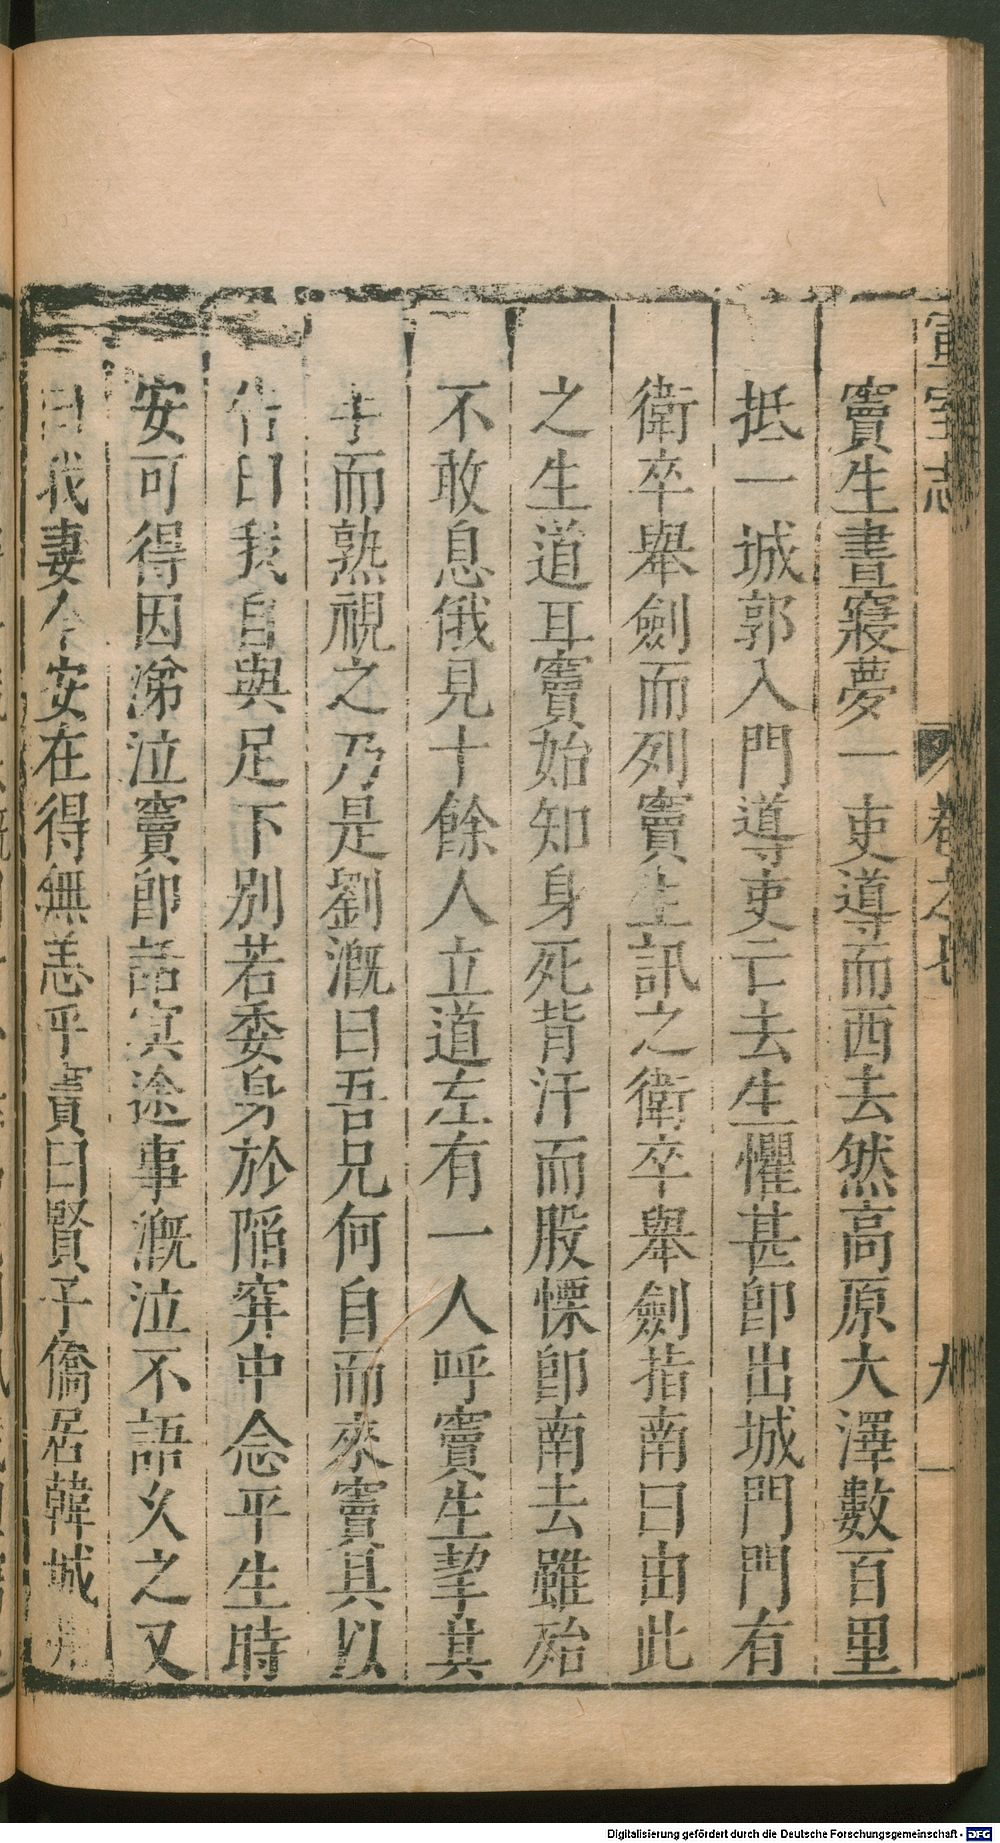 宣室志 卷之七 九
竇生晝寢夢一吏導而西去然高原大澤數百里
抵一城郭入門導吏亡去生懼甚卽出城門門有
衛卒舉劍而列竇生訊之衛卒舉劍指南曰由此
之生道耳竇始知身死背汗而股慄卽南去雖殆
不敢息俄見十餘人立道左有一人呼竇生挈其
手而熟視之乃是劉漑曰吾兄何自而來竇具以
告曰我自與足下別若委身於陷穽中念平生時
安可得因涕泣竇卽話冥途事漑泣不語久之又
曰我妻今安在得無恙乎竇曰賢子僑居韓城
Digitalisierung gefördert durch die Deutsche Forschungsgemeinschaft - DFG